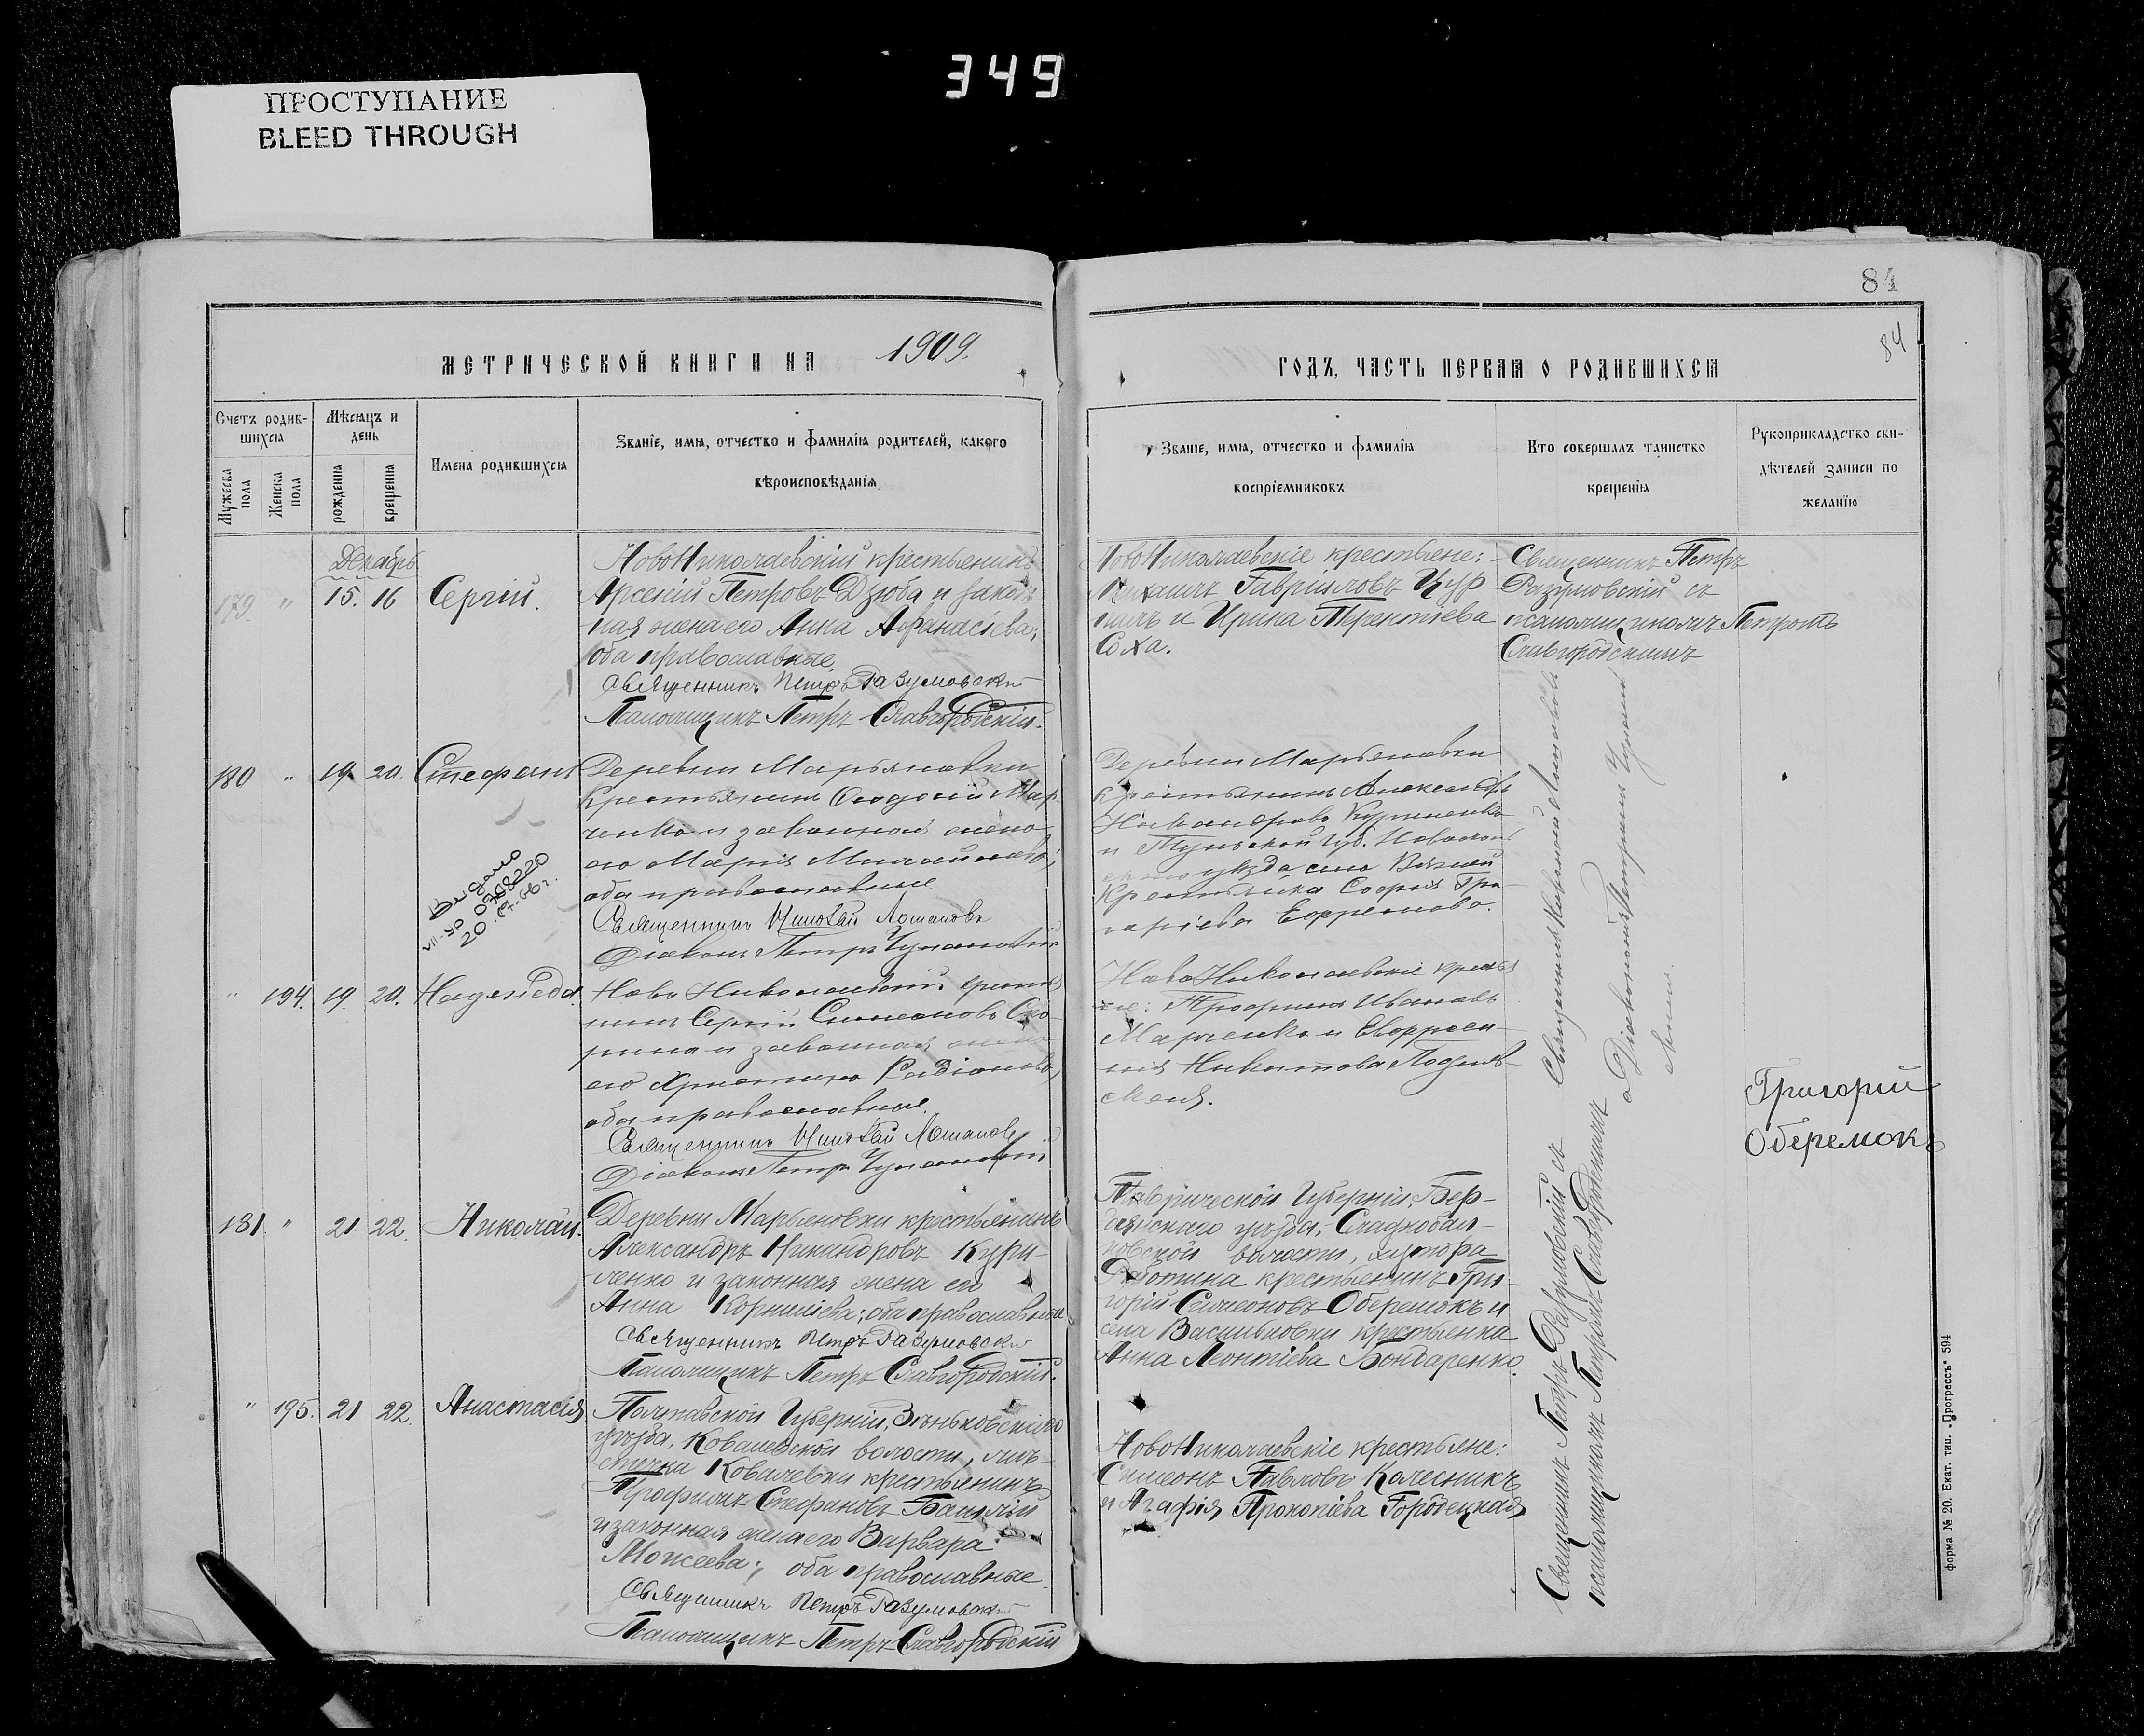 349
ПРОСТУПАНИЕ
BLEED THROUGH
84
84
МЕТРИЧЕСКОЙ КНИГИ НА 1909.
ГОДЪ, ЧАСТЬ ПЕРВАЯ О РОДИВШИХСЯ
Счетъ родив-
шихся
Мужеска пола
Женска пола
Мѣсяцъ и
день
рожденія
крещенія
Имена родившихся
Званіе, имя, отчество и фамилія родителей, какого
вѣроисповѣданія
Званіе, имя, отчество и фамилія
воспріемниковъ
Кто совершалъ таинство
крещенія
Рукоприкладство сви-
дѣтелей записи по
желанію
Декабрь
179. " 15. 16 Сергій.
НовоНиколаевскій крестьянинъ
Арсеній Петровъ Дзюба и закон-
ная жена его Анна Афанасіева;
оба православные.
Священникъ Петръ Разумовскій
Псаломщикъ Петръ Славгородскій.
НовоНиколаевскіе крестьяне:
Михаилъ Гавриловъ Цур
палъ и Ирина Терентіева
Соха.
Священникъ Петръ
Разумовскій съ
псаломщикомъ Петромъ
Славгородскимъ
180 " 19 20. Стефанъ
Деревни Марьяновки
Крестьянинъ Феодосій Мар
ченко и законная жена
его Марія Михайлова;
оба православные
Священникъ Николай
Діаконъ Петръ
Видано
VII-ЯР 0768220
20.
Деревни Марьяновки
крестьянинъ Александръ
Никандровъ Куриленко
и Тульской губ.
уѣзда села
Крестьянка Софія Гри-
горіева Ефремова.
" 194. 19. 20. Надежда.
Ново Николаевскій крестья
нинъ Сергій Симеоновъ Ско-
рина и законная жена
его Христина Радіонова,
оба православные.
Священникъ Николай
Діаконъ Петръ
Ново Николаевскіе крестья
не: Трофимъ Ивановъ
Марченко и Евфроси-
нія Никитова
Григорій
Оберемокъ
181 " 21 22. Николай.
Деревни Марьяновки крестьянинъ
Александръ Никандровъ Кури-
ленко и законная жена его
Анна Корниліева; оба православные
Священникъ Петръ Разумовскій
Псаломщикъ Петръ Славгородскій.
Таврической Губерніи, Бер-
дянскаго уѣзда, Сладкобал-
ковской волости, хутора
Работина крестьянинъ Гри-
горій Симеоновъ Оберемокъ и
села Васильковки крестьянка
Анна Леонтіева Бондаренко.
Священникъ Петръ Разумовскій съ
псаломщикомъ Петромъ Славгородскимъ
" 195. 21 22. Анастасія
Полтавской Губерніи, Зѣньковскаго
уѣзда, Ковалевской волости, мѣ-
стечка Ковалевки крестьянинъ
Трофимъ Стефановъ
и законная жена его Варвара
Моисеева; оба православные
Священникъ Петръ Разумовскій
Псаломщикъ Петръ Славгородскій
НовоНиколаевскіе крестьяне:
Симеонъ Павловъ Колесникъ
и Агафія Прокопіева Городецкая
форма № 20. Екат. тип. „Прогрессъ“ 594